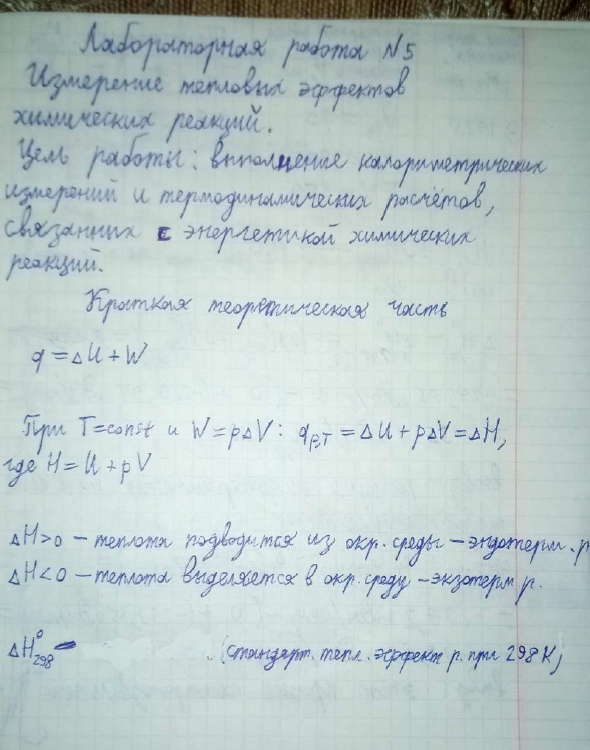 Лабораторная работа N5
Измерение тепловых эффектов
химических реакций.
Цель работы: выполнение калориметрических
измерений и термодинамических расчётов,
связанных с энергетикой химических
реакций.
Краткая теоретическая часть
q = ΔU + W
При T=const и W = pΔV: qp,T = ΔU + pΔV = ΔH,
где H = U + pV
ΔH>0 – теплота подводится из окр. среды – эндотерм. р
ΔH<0 – теплота выделяется в окр. среду – экзотерм р.
ΔH°298 – (стандарт. тепл. эффект р. при 298 К)